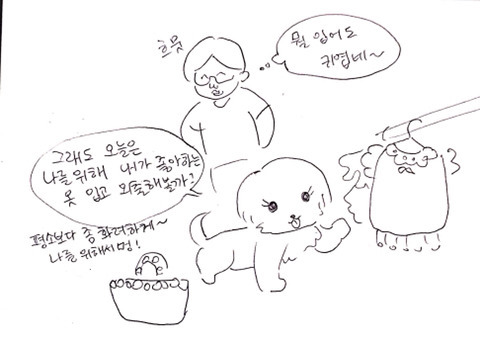 흐뭇
뭘 입어도
귀엽네~
그래도 오늘은
나를 위해 내가 좋아하는
옷 입고 외출해볼까?
평소보다 좀 화려하게~
나를 위해서 멍!